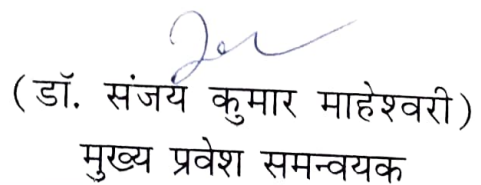 (डॉ. संजय कुमार माहेश्वरी)
मुख्य प्रवेश समन्वयक